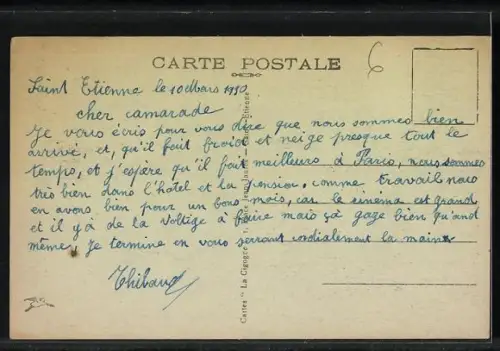 CARTE POSTALE
6
Saint Etienne le 10 Mars 1950
cher camarade
Je vous écris pour vous dire que nous sommes bien
arrivé, et, qu'il fait froid et neige presque tout le
temps, et j'espère qu'il fait meilleurs à Paris, nous sommes
très bien dans l'hôtel et la pension, comme travail nous
en avons bien pour un bons mois, car le cinema est grand
et il y à de la voltige à faire mais ça gage bien qu'and
même, Je termine en vous serrant cordialement la mains
Thibaud
Cartes "La Cigogne"